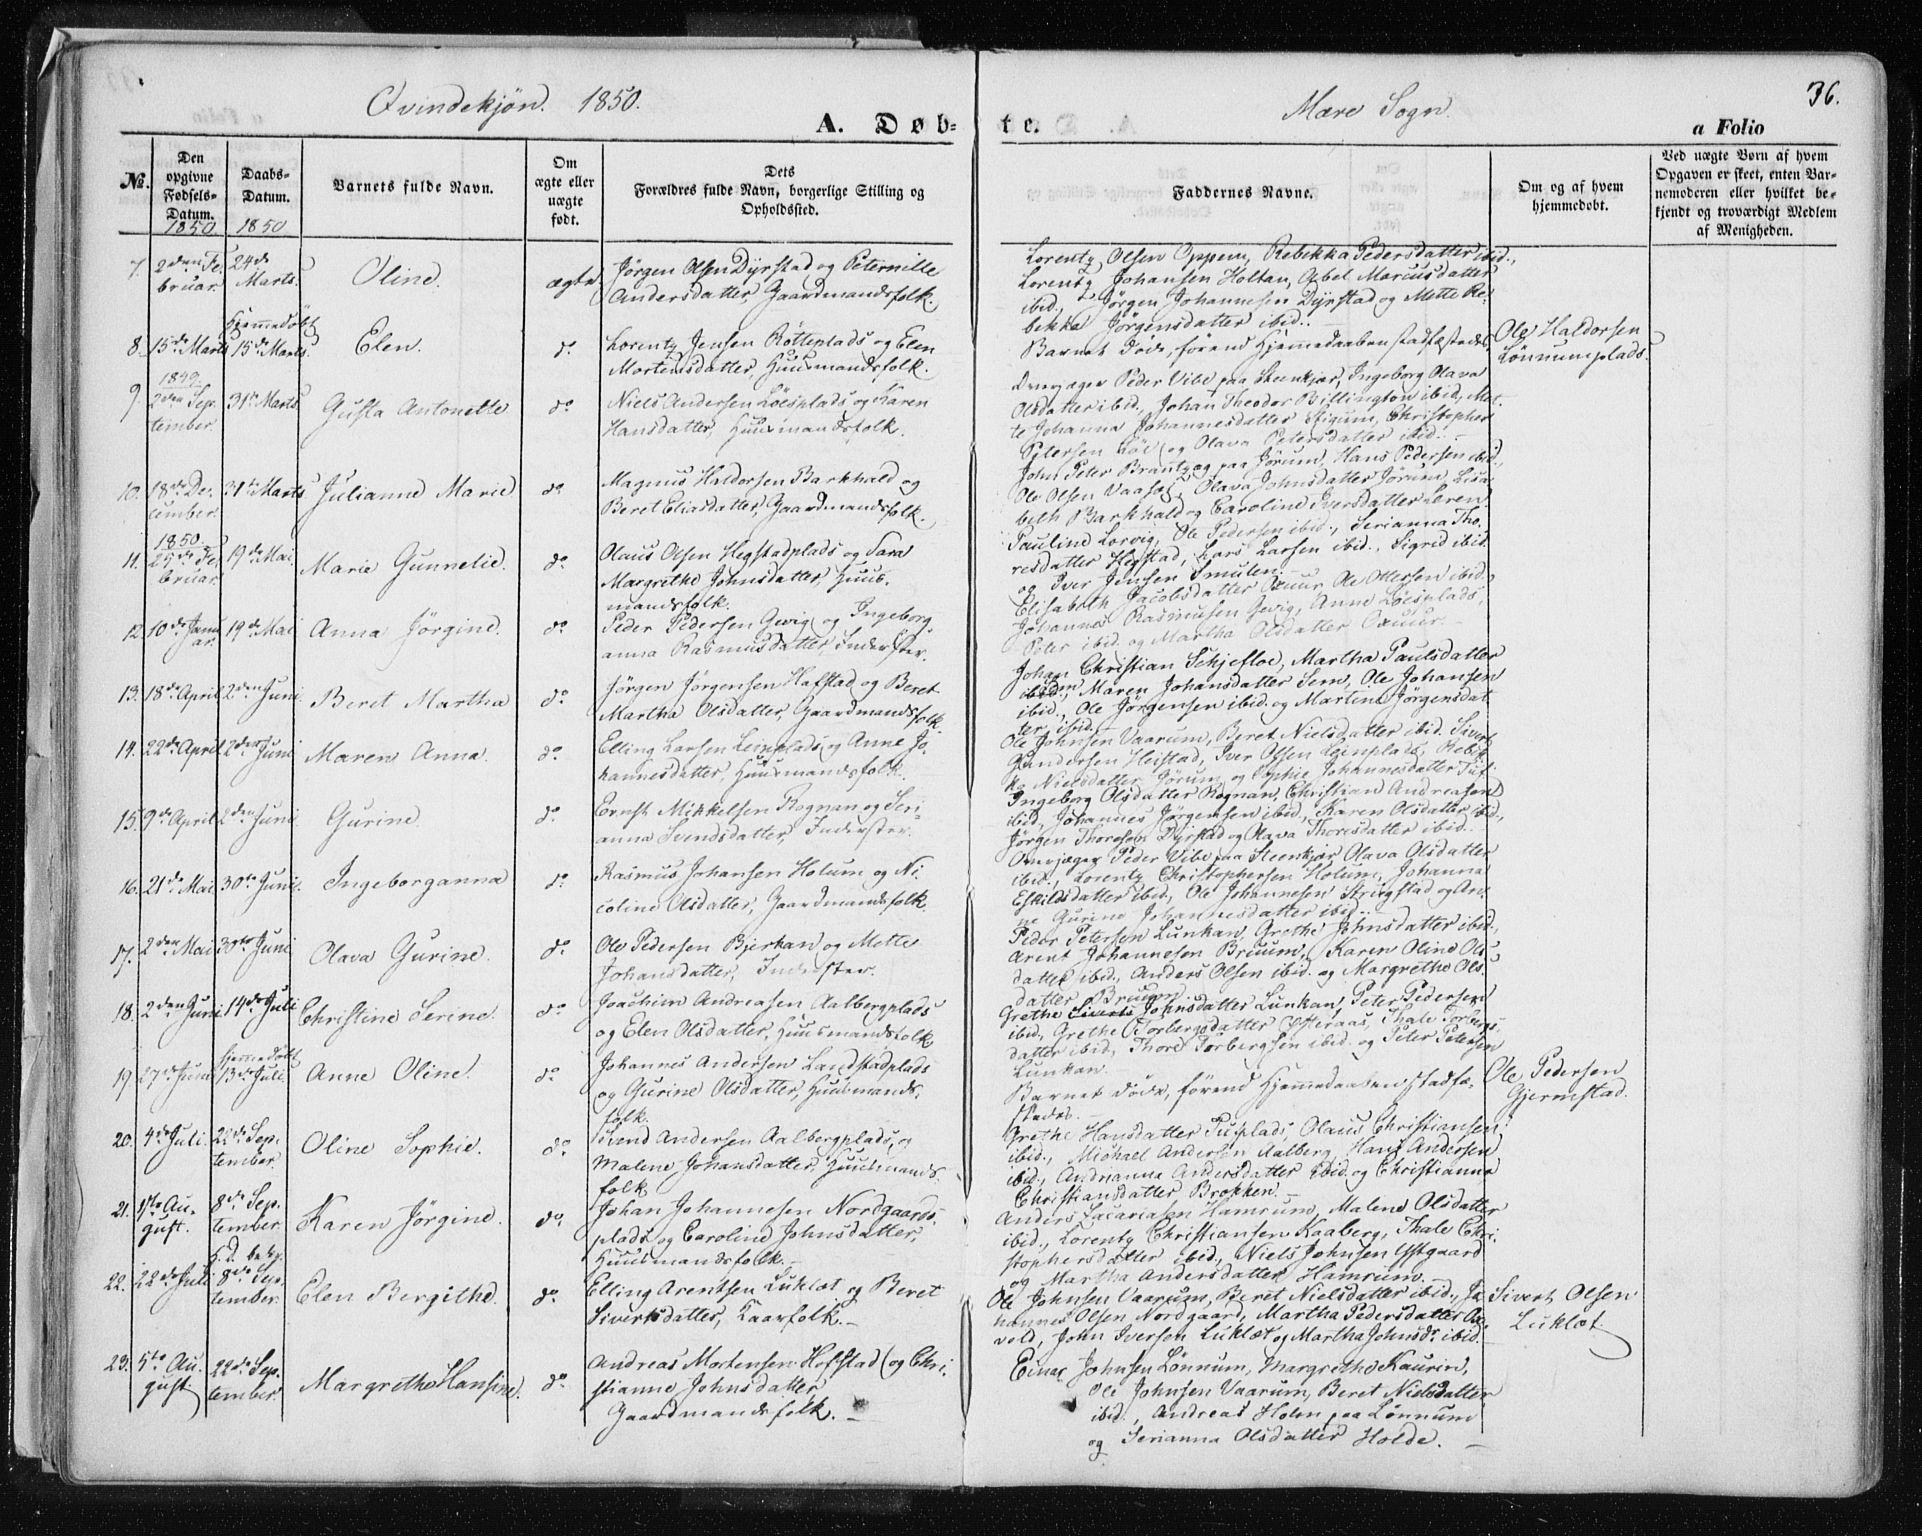 Qvindekjøn. 1850.
Mære Sogn.
36.
A. Døb-
te.
a Folio
No.
Den opgivne Fødsels-Datum.
Daabs-Datum.
Barnets fulde Navn.
Om ægte eller uægte født.
Dets Forældres fulde Navn, borgerlige Stilling og Opholdssted.
Faddernes Navne.
Om og af hvem hjemmedøbt.
Ved uægte Børn af hvem Opgaven er skeet, enten Bar-
nemoderen eller hvilket be-
kjendt og troværdigt Medlem
af Menigheden.
1850 1850
7. 2den Fe-
bruar. 24de
Marts. Oline. ægte
Jörgen Olsen Dyrstad og Peternille
Andersdatter, Gaardmandsfolk.
Lorentz Olsen Oppem, Rebekka Pedersdatter ibid.,
Lorentz Johansen Holtan, Asbel Marcusdatter
ibid., Jörgen Johannesen Dyrstad og Mette Re-
bekka Jörgensdatter ibid.
Hjemmedöbt
8. 15de Marts 15de Marts. Elen. do.
Lorentz Jensen Rötteplads og Elen
Mortensdatter, Huusmandsfolk.
Barnet döde, förend Hjemmedaaben stadfæstedes.
Ole Haldorsen
Lönnumsplads.
1849
9. 2den Sep-
tember. 31te Marts Gusta Antonette do
Niels Andersen Löesplads og Karen
Hansdatter, Huusmandsfolk.
Peder Vibe paa Steenkjær, Ingeborg Olava
Olsdatter ibid., Johan Theodor Billington ibid., Met-
te Johanna Johannesdatter Stigum, Christopher
Petersen Löe og Olava Petersdatter ibid. -
10. 18de De-
cember. 31te Marts Julianne Marie do
Magnus Haldorsen Barkhald og
Beret Eliasdatter, Gaardmandsfolk.
John Peter Brantzæg paa Jörum, Hans Pedersen ibid.,
Ole Olsen Vaasaas, Olava Johnsdatter Jörum, Lisa-
beth Barkhald og Caroline Iversdatter Leren.
1850
11. 25de Fe-
bruar. 19de Mai. Marie Gunnelie. do.
Olaus Olsen Hegstadplads og Sara
Margrethe Johnsdatter, Huus-
mandsfolk.
Pauline Lorvig, Ole Pedersen ibid., Serianna Tho-
resdatter Hegstad, Lars Larsen ibid., Sigrid ibid.
og Iver Jensen Smulen. -
12. 10de Janu-
ar. 19de Mai Anna Jörgine. do.
Peder Pedersen Gevig og Ingeborg
anna Rasmusdatter, Inderster.
Elisabeth Jacobsdatter Oxuur, Ole Ottersen ibid.,
Johannes Rasmusen Gevig, Anne Löesplads,
Peter ibid. og Martha Olsdatter Oxuur. -
13. 18de April 2den Juni Beret Martha do.
Jörgen Jörgensen Hafstad og Beret
Martha Olsdatter, Gaardmandsfolk.
Johan Christian Schjefloe, Martha Paulsdatter
Sem, Maren Johansdatter Sem, Ole Johansen
ibid., Ole Jörgensen ibid. og Martine Jörgensdat-
ter ibid.
14. 22de April 2den Juni Maren Anna. do.
Elling Larsen Leinplads og Anne Jo-
hannesdatter, Huusmandsfolk.
Ole Johnsen Vaarum, Beret Nielsdatter ibid. Sivert
Gundersen Heistad, Iver Olsen Leinplads, Rebik-
ka Nielsdatter Jörum og Sophie Johannesdatter Tuf.
15. 9de April 2den Juni. Gurine do.
Ernst Mikkelsen Rognan og Seri-
anna Svendsdatter, Inderster.
Ingeborg Olsdatter Rognan, Christian Andreasen
ibid., Johannes Jörgensen ibid., Karen Olsdatter ibid.,
Jörgen Thoresen Dyrstad og Olava Thoresdatter ibid.
16. 21de Mai 30te Juni. Ingeborganna do.
Rasmus Johansen Holum og Ni-
coline Olsdatter, Gaardmandsfolk.
Peder Vibe paa Steenkjær, Olava Olsdatter
ibid., Lorentz Christophersen Holum, Johanna
Eskildsdatter ibid., Ole Johannesen Strugstad og An-
ne Gurine Johannesdatter ibid.
17. 2den Mai 30te Juni Olava Gurine. do.
Ole Pedersen Bjerkan og Mette
Johansdatter, Inderster.
Peder Petersen Lunkan, Grethe Johnsdatter ibid.,
Arent Johannesen Bruum, Karen Oline Ols-
datter ibid., Anders Olsen ibid. og Margrethe Ols-
datter Bruum
18. 2den Juni 14de Juli Christine Serine. do.
Joachim Andreasen Aalbergplads
og Elen Olsdatter, Huusmandsfolk
Grethe Johnsdatter Lunkan, Peter Pedersen
ibid., Grethe Torbergsdatter Ofteraas, Thale Torbergs-
datter ibid., Thore Torbergsen ibid. og Peter Petersen
Lunkan.
hjemmedöbt
19 27de Juni 13de Juli. Anne Oline. do.
Johannes Andersen Landstadplads
og Gurine Olsdatter, Huusmands-
folk.
Barnet döde, förend Hjemmedaaben stadfæ-
stedes. -
Ole Pedersen
Gjermstad.
20. 4de Juli. 22de Sep-
tember. Oline Sophie. do.
Svend Andersen Aalbergplads, og
Malene Johansdatter, Huusmands-
folk
Grethe Hansdatter Tufplads, Olaus Christiansen
ibid., Michael Andersen Aalberg, Hans Andersen
ibid., Andrianna Andersdatter ibid. og Christianna
Christiansdatter Brokken. -
21. 1ste Au-
gust. 8de Sep-
tember. Karen Jörgine. do.
Johan Johannesen Nordgaards-
plads og Caroline Johnsdatter,
Huusmandsfolk. -
Anders Zacariasen Hamrum, Malene Olsdatter
ibid., Lorentz Christiansen Kaaberg, Thale Chri-
stophersdatter ibid., Niels Johnsen Ystgaard
og Martha Andersdatter Hamrum.
H. D. bekg.
22. 22de Juli 8de Sep-
tember. Elen Bergithe. do.
Elling Arentsen Luklæt og Beret
Sivertsdatter, Kaarfolk. -
Ole Johnsen Vaarum, Beret Nielsdatter ibid., Jo-
hannes Olsen Nordgaard, Martha Pedersdatter Aa-
vold, John Iversen Luklæt og Martha Johnsdr. ibid.
Sivert Olsen
Luklæt.
23. 5te Au-
gust 22de Sep-
tember. Margrethe Hansine. do.
Andreas Mortensen Hoffstad og Chri-
stianne Johnsdatter
Gaardmandsfolk. -
Einar Johnsen Lönnum, Margrethe Kaurin,
Ole Johnsen Vaarum, Beret Nielsdatter
ibid., Andreas Holm paa Lönnum
og Serianna Olsdatter Holde. -